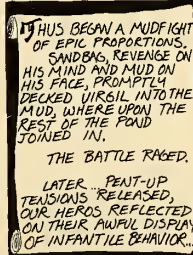 THUS BEGAN A MUDFIGHT
OF EPIC PROPORTIONS.
SANDBAG, REVENGE ON
HIS MIND AND MUD ON
HIS FACE, PROMPTLY
DECKED VIRGIL INTO THE
MUD, WHERE UPON THE
REST OF THE POND
JOINED IN.
THE BATTLE RAGED.
LATER... PENT-UP
TENSIONS RELEASED,
OUR HEROS REFLECTED
ON THEIR AWFUL DISPLAY
OF INFANTILE BEHAVIOR...